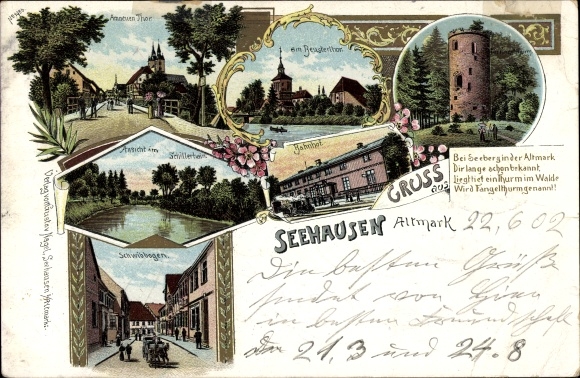 Arnstien Thor
am Beusterthor
Bei Seeberg in der Altmark
Dir lange schon bekannt
Liegt tief ein Thurm im Walde
Wird Tangelthurm genannt!
Ansicht im
Schillerhain
Bahnhof
GRUSS
aus
SEEHAUSEN
Altmark
22.6.02
Schwibbogen
Verlag von Gustav Nagel, Seehausen i/Altmark.
Die besten Grüße
sendet von hier
in bester Freundschaft
21,3 und 24.8